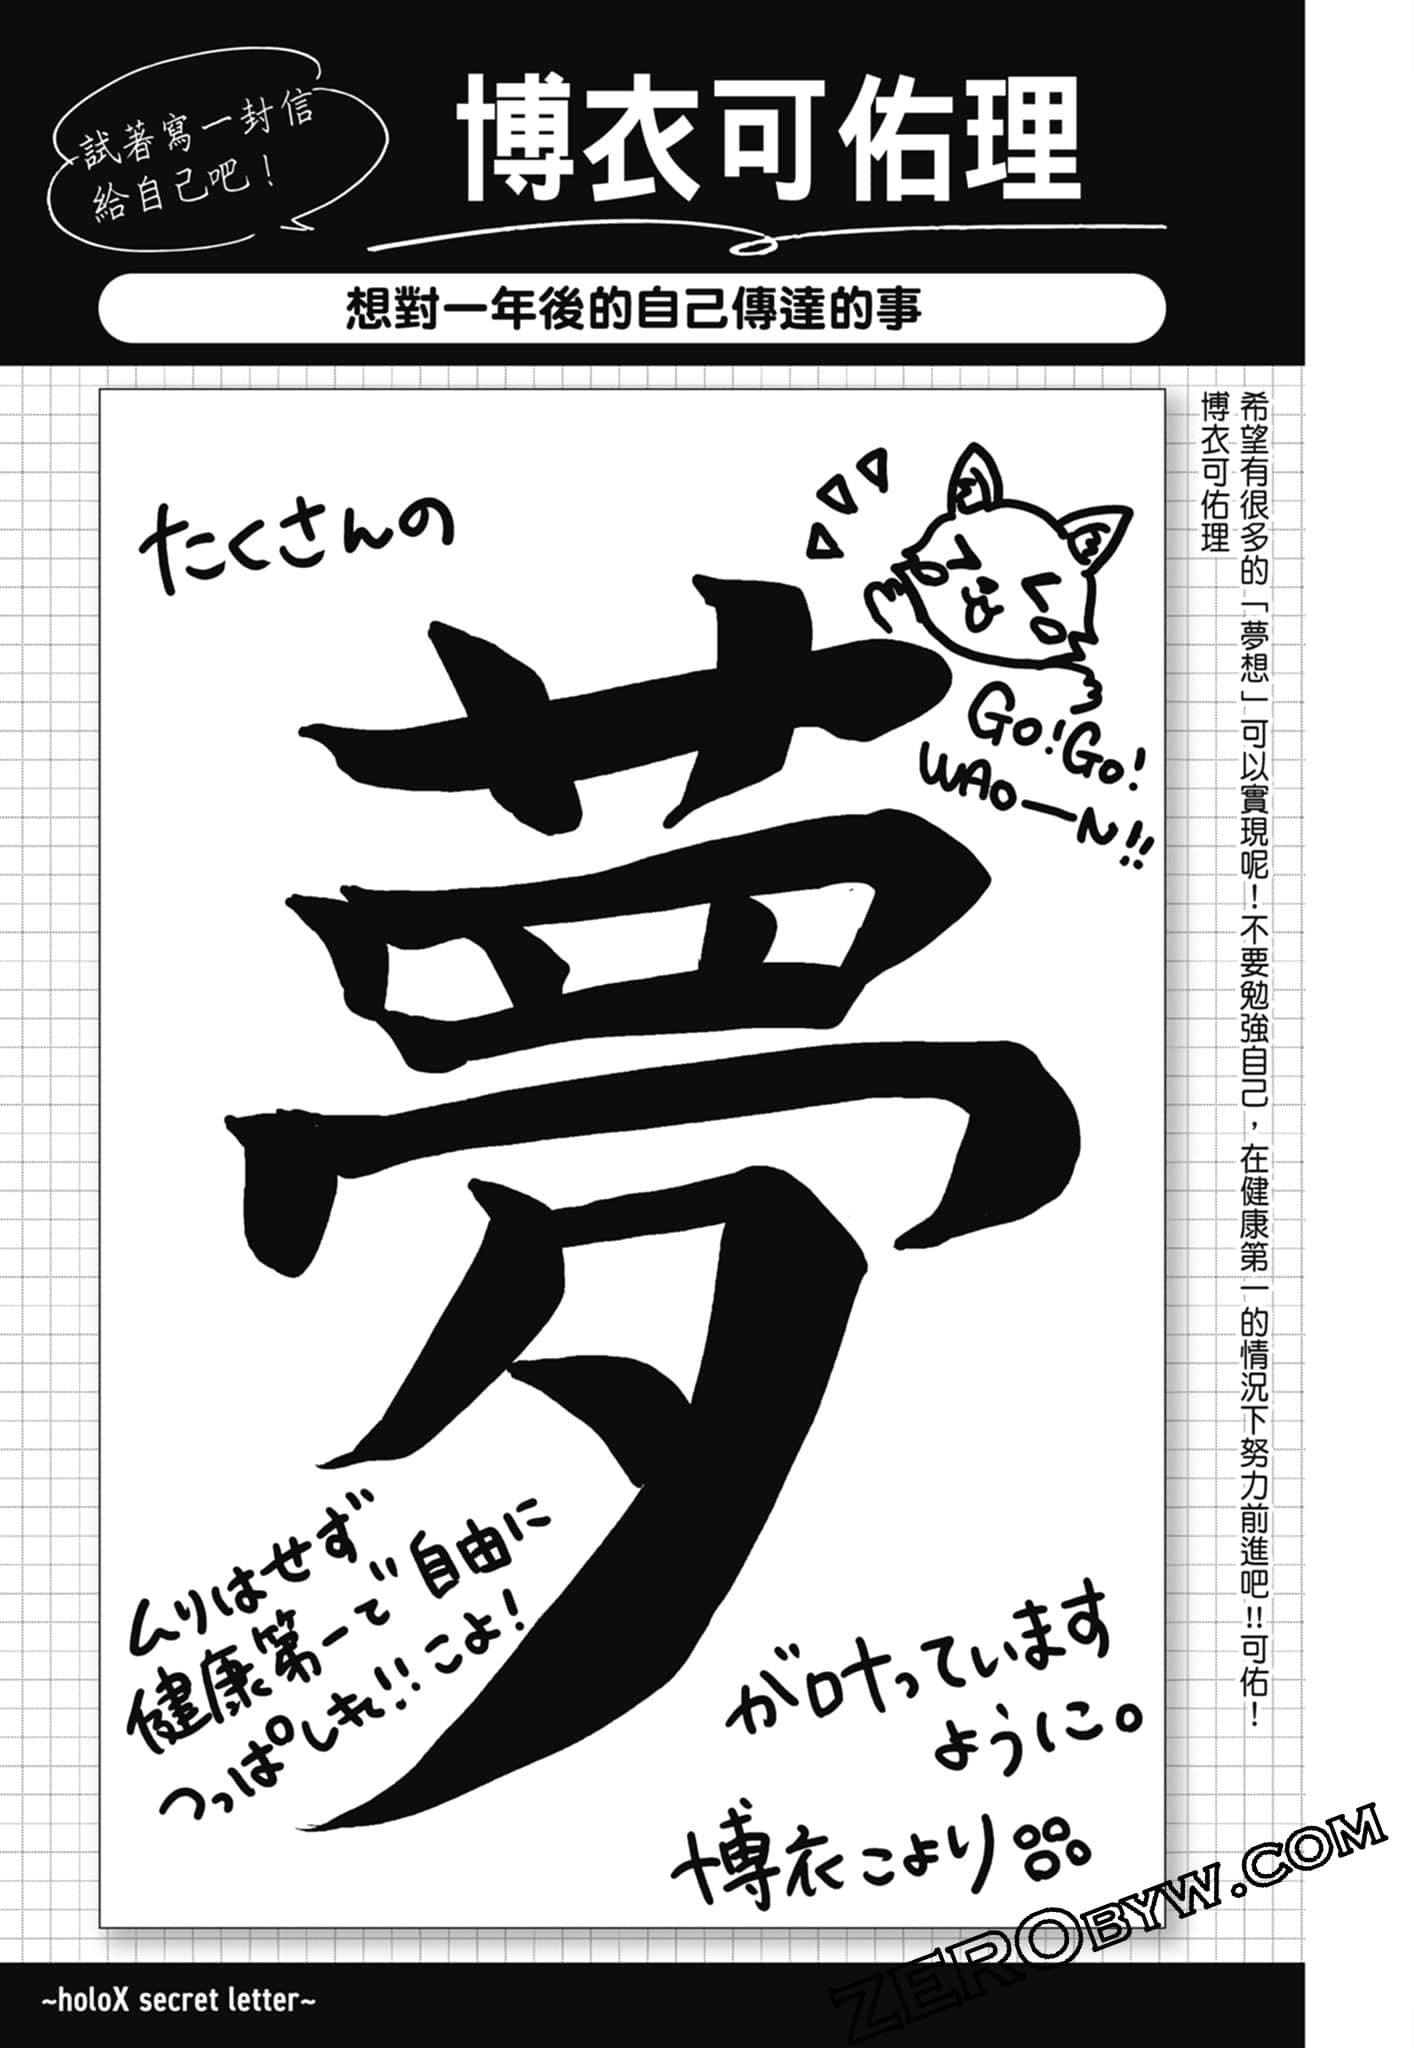 試著寫一封信
給自己吧！
博衣可佑理
想對一年後的自己傳達的事
希望有很多的「夢想」可以實現呢！不要勉強自己，在健康第一的情況下努力前進吧!!可佑！
博衣可佑理
たくさんの
夢
Go!Go!
WAO―N!!
ムりはせず
健康第一で自由に
つっぱしれ!!こよ!
が叶っています
ように。
博衣こより
~holoX secret letter~
ZEROBYW.COM